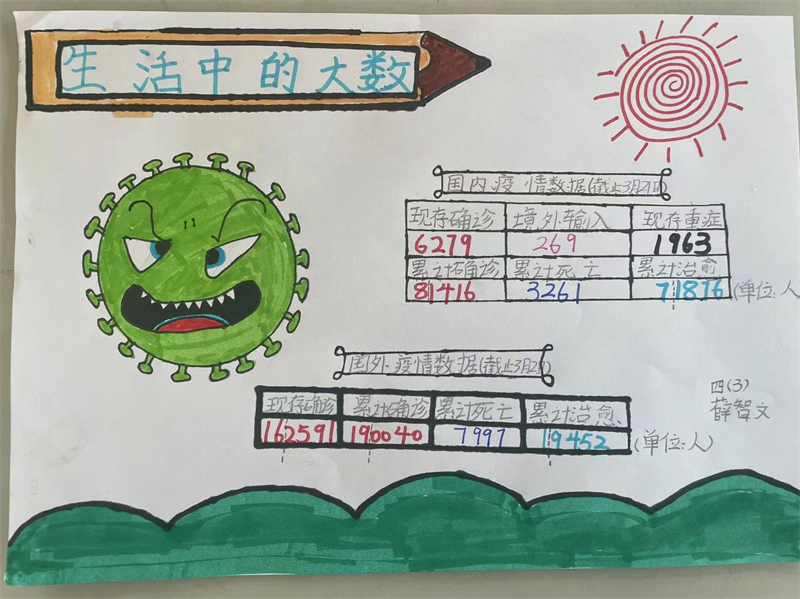 生活中的大数
国内疫情数据(截止3月21日)
现存确诊 境外输入 现存重症
6279 269 1963
累计确诊 累计死亡 累计治愈
81416 3261 71876 (单位:人
国外疫情数据(截止3月21)
现存确诊 累计确诊 累计死亡 累计治愈
162591 190040 7997 19452 (单位:人)
四(3)
薛智文